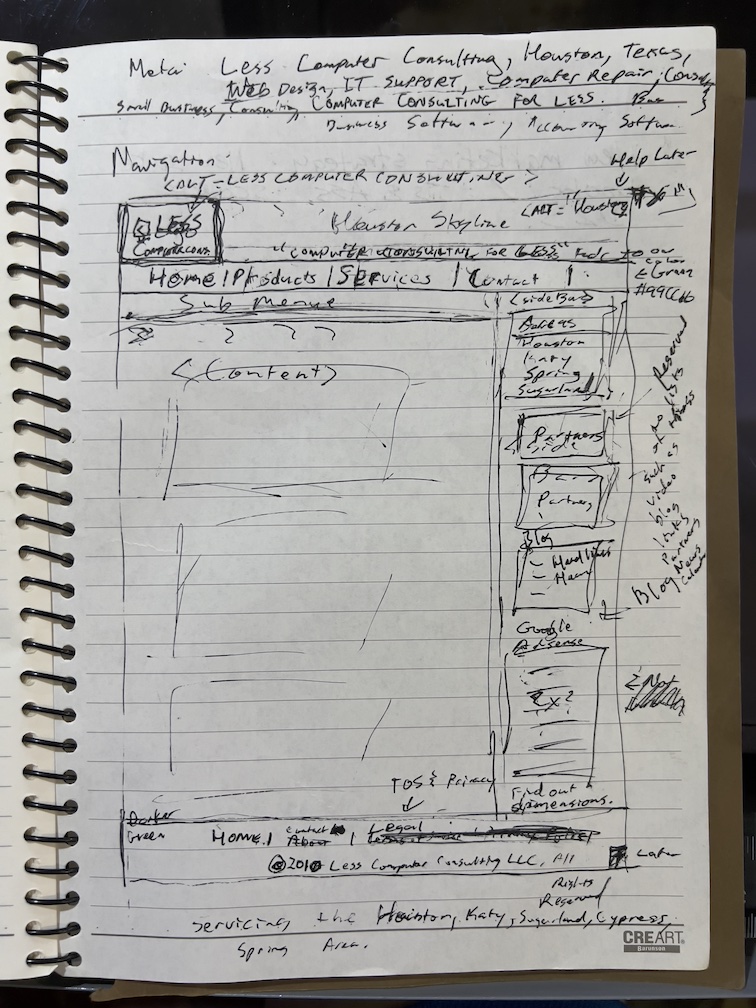 Meta: Less Computer Consulting, Houston, Texas,
Web Design, IT SUPPORT, Computer Repair,
Small Business, Consulting, COMPUTER CONSULTING FOR LESS.
Business Software, Accounting Software
Navigation:
Help Later
<ALT = LESS COMPUTER CONSULTING>
LESS
COMPUTER CONS.
Houston Skyline
<ALT = "Houston
"COMPUTER CONSULTING FOR LESS" Fade to our
color
Green
#99CC66
Home | Products | Services | Contact |
Sub Menue
<sideBar>
Areas
Houston
Katy
Spring
Sugarland
<Content>
Reserved
lists
such as
video
blog
links
Partners
News
Partners
side
Partners
Blog
- Headlines
Blog
Google
Adsense
Find out
dimensions.
TOS & Privacy
Darker
Green
HOME. | Contact
About | Legal
© 2010 Less Computer Consulting LLC, All
Rights
Reserved
Later
Servicing the Houston, Katy, Sugarland, Cypress,
Spring Area.
CREART
Baronson